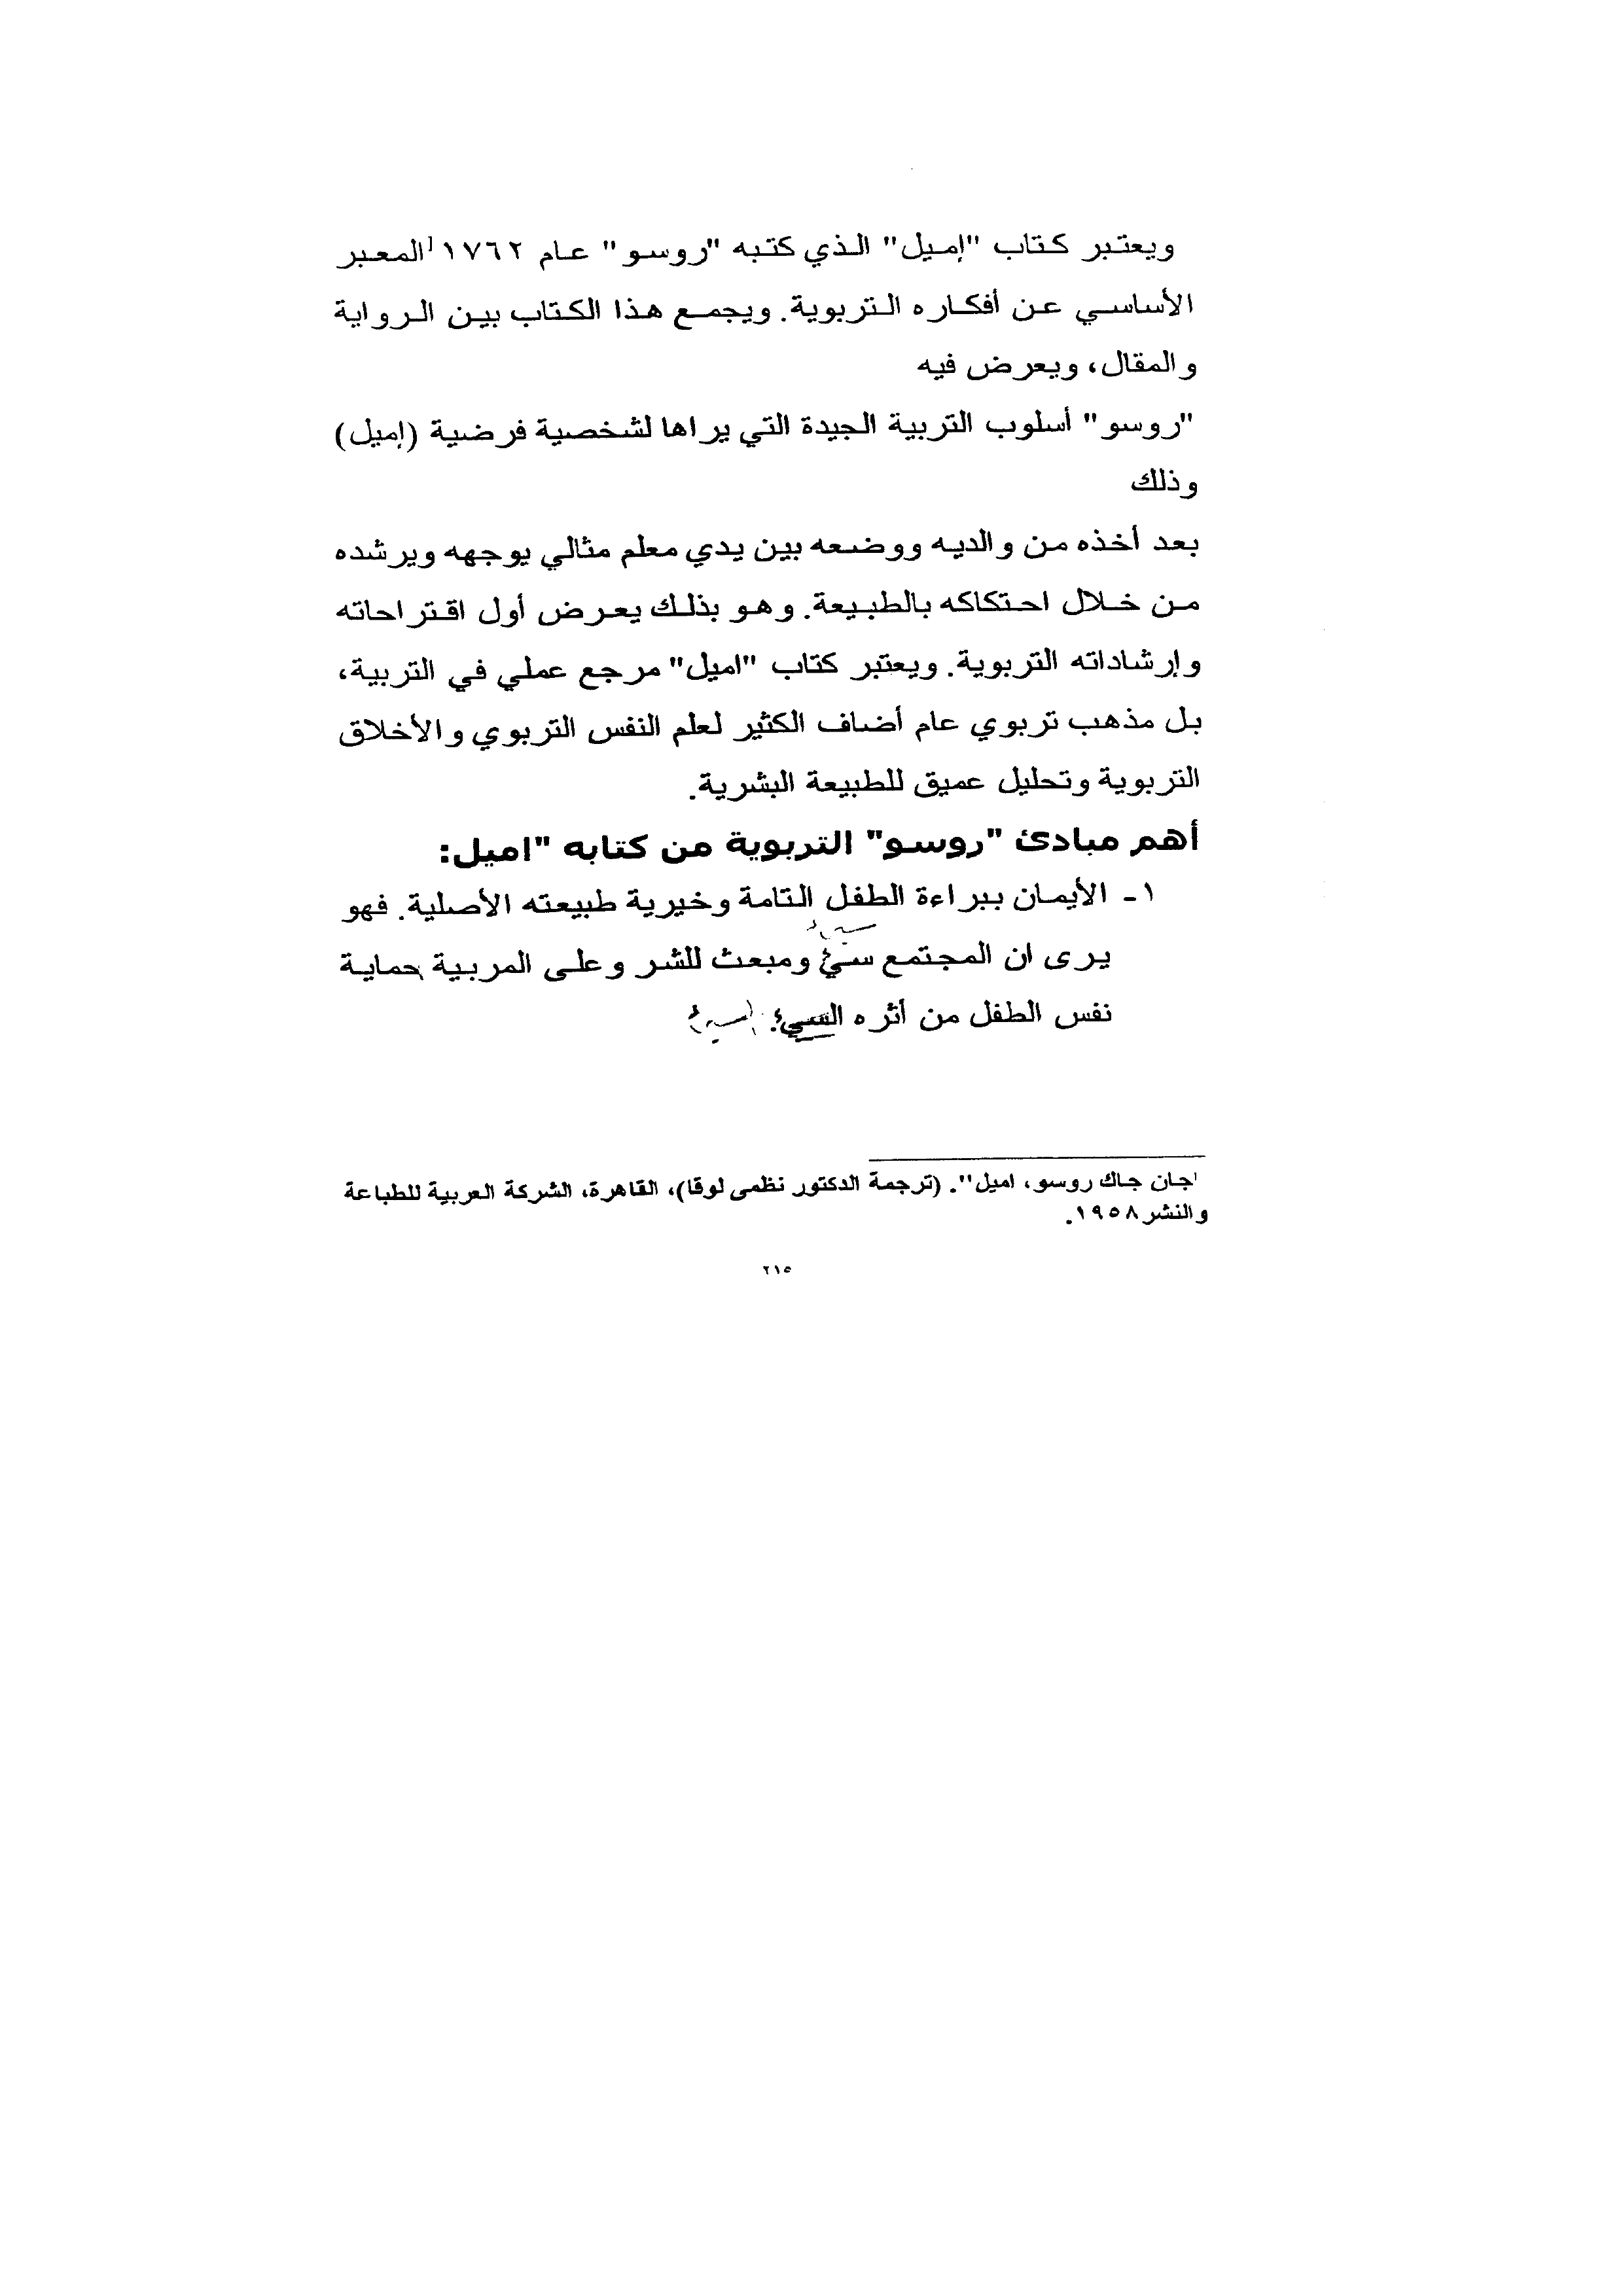 ويعتبر كتاب "إميل" الذي كتبه "روسو" عام ١٧٦٢ ١المعبر
الأساسي عن أفكاره التربوية. ويجمع هذا الكتاب بين الرواية
والمقال، ويعرض فيه
"روسو" أسلوب التربية الجيدة التي يراها لشخصية فرضية (إميل)
وذلك
بعد أخذه من والديه ووضعه بين يدي معلم مثالي يوجهه ويرشده
من خلال احتكاكه بالطبيعة. وهو بذلك يعرض أول اقتراحاته
وإرشاداته التربوية. ويعتبر كتاب "اميل" مرجع عملي في التربية،
بل مذهب تربوي عام أضاف الكثير لعلم النفس التربوي والأخلاق
التربوية وتحليل عميق للطبيعة البشرية.
أهم مبادئ "روسو" التربوية من كتابه "اميل:
١- الأيمان ببراءة الطفل التامة وخيرية طبيعته الأصلية. فهو
يرى ان المجتمع سئ ومبعث للشر وعلى المربية حماية
نفس الطفل من أثره السيء.
١جان جاك روسو، اميل". (ترجمة الدكتور نظمى لوقا)، القاهرة، الشركة العربية للطباعة
والنشر ١٩٥٨.
٢١٥